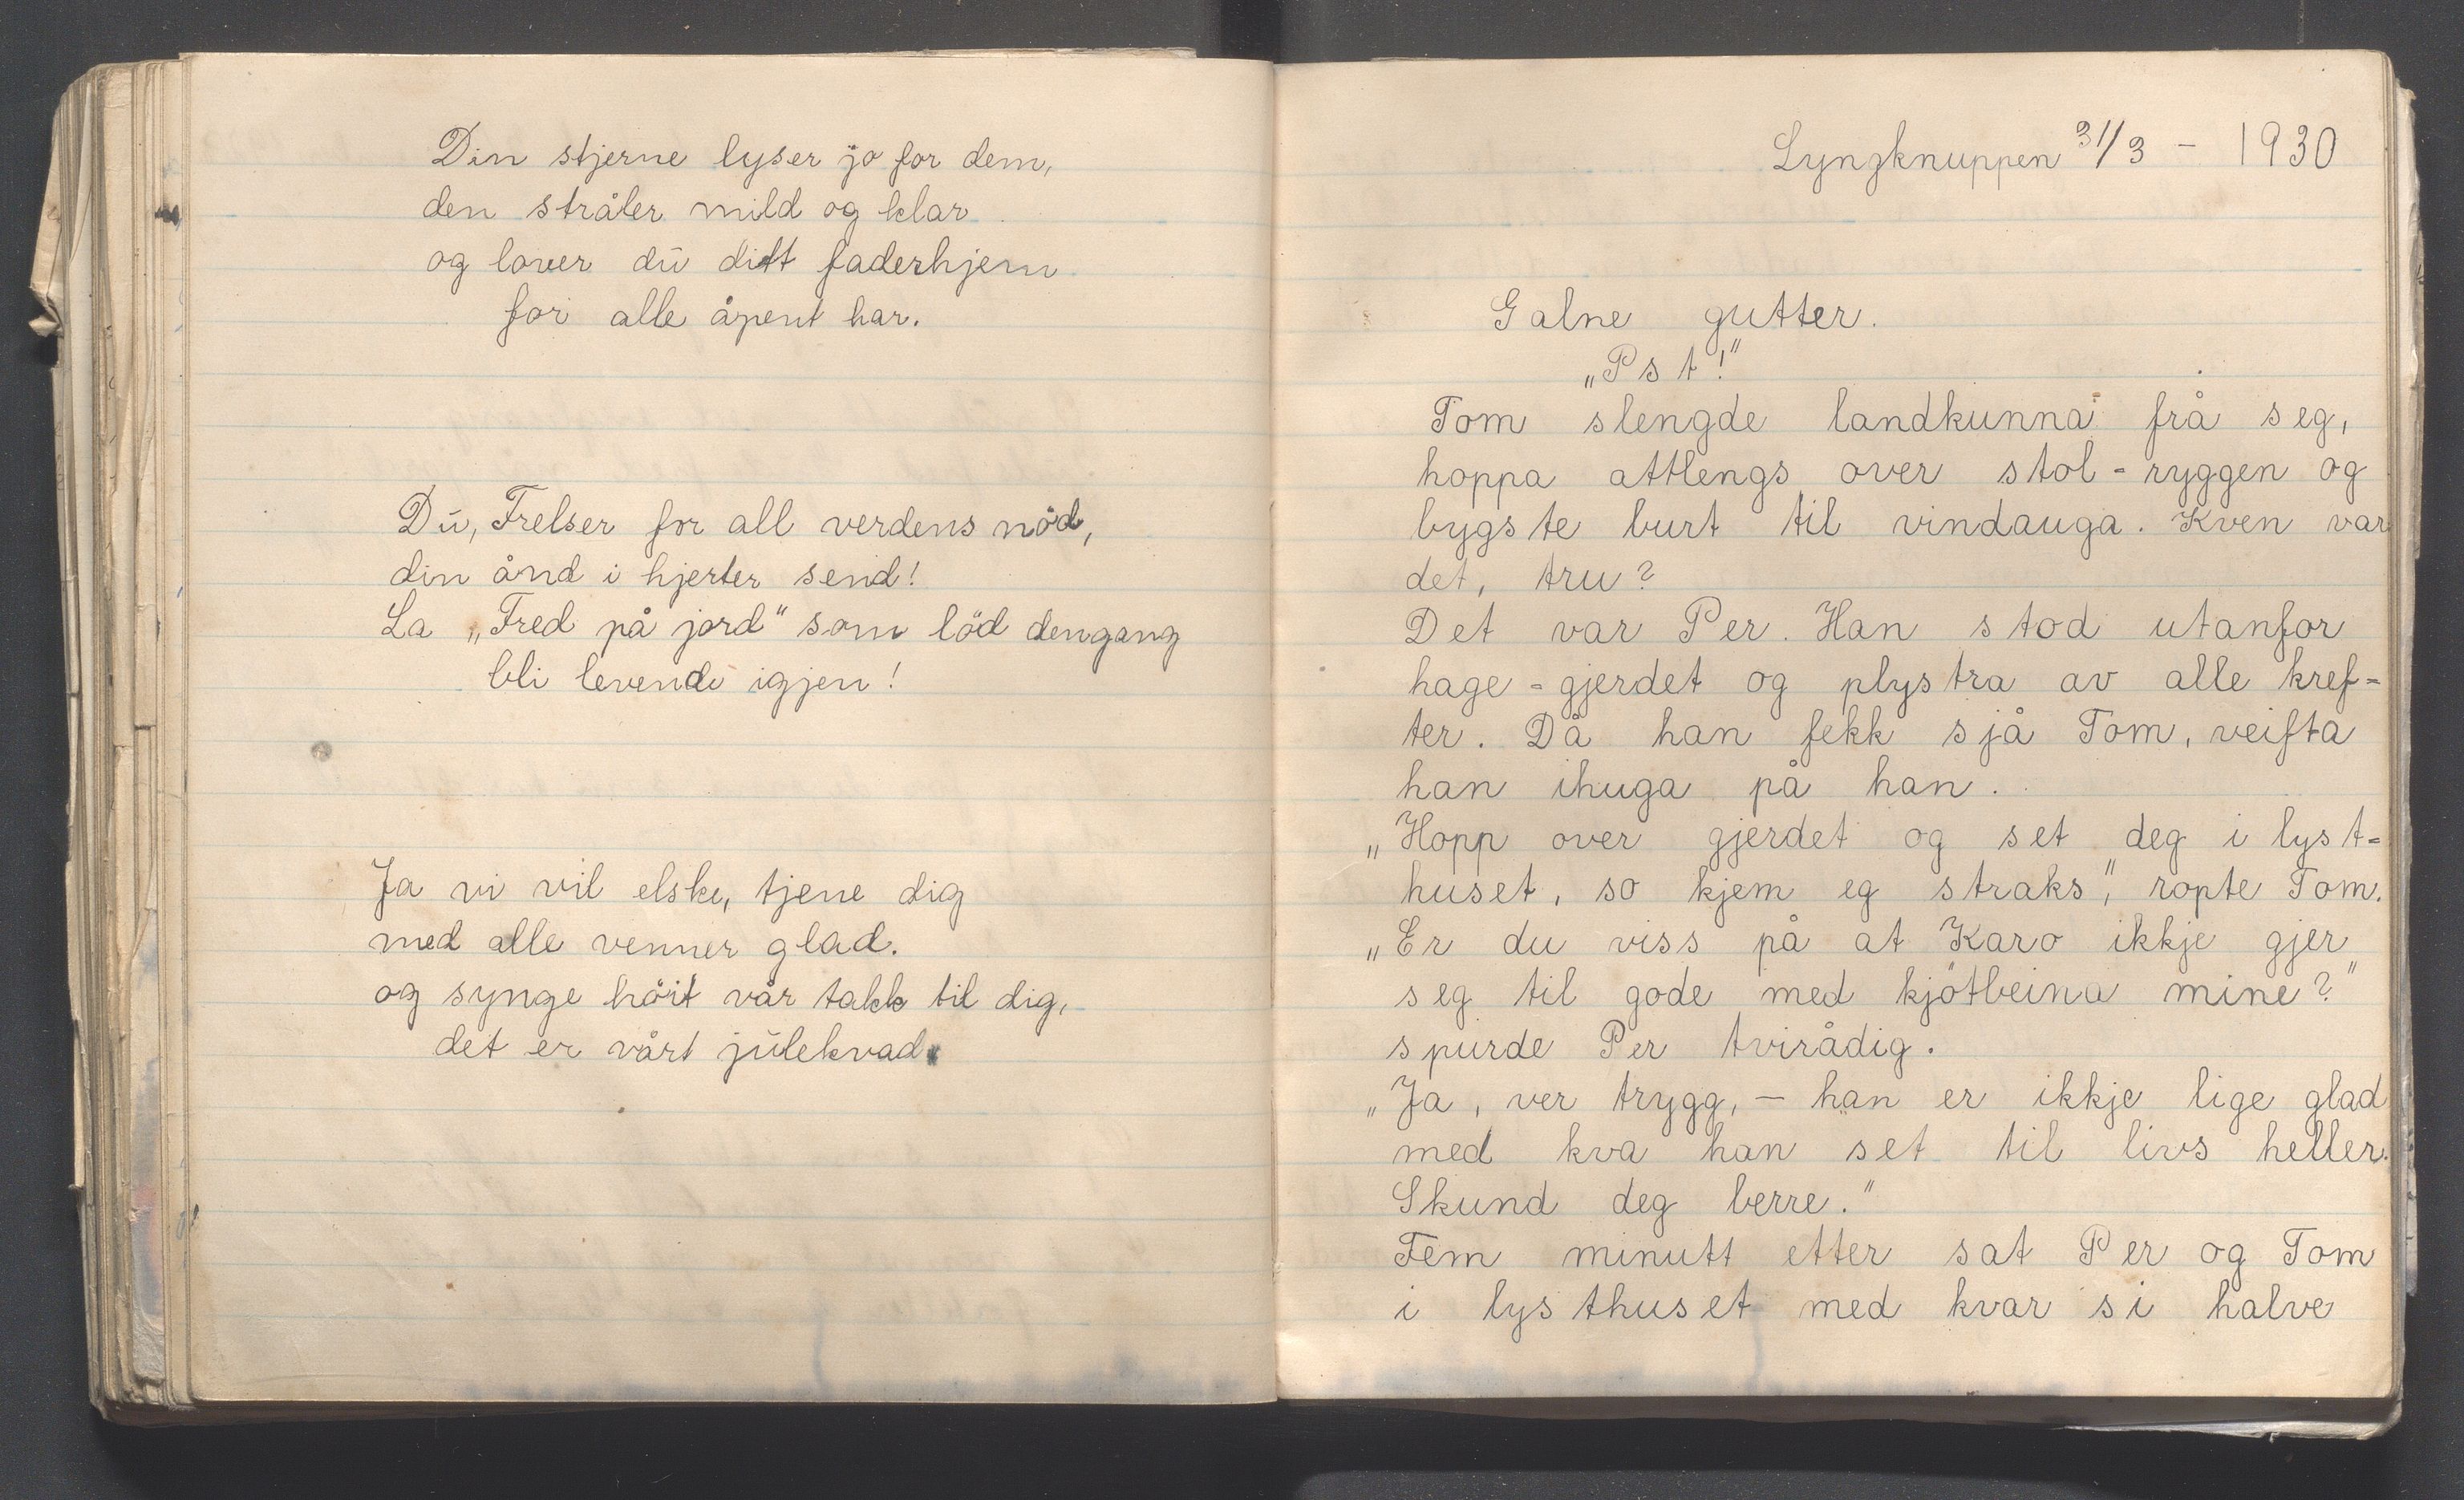 Din stjerne lyser jo for dem,
den stråler mild og klar
og lover dū ditt faderhjem
for alle åpent har.
Dū, Frelser for all verdens nöd,
din ånd i hjerter send!
La „Fred på jord" som löd dengang
bli levende igjen!
Ja vi vil elske, tjene dig
med alle venner glad.
og synge höit vår takk til dig,
det er vårt jūlekvad.
Lyngknuppen 31/3 - 1930
Galne gutter.
„Pst!"
Tom slengde landkunna frå seg,
hoppa attlengs over stol-ryggen og
bygste burt til vindauga. Kven var
det, tru?
Det var Per. Han stod utanfor
hage-gjerdet og plystra av alle kref-
ter. Då han fekk sjå Tom, veifta
han ihuga på han.
„Hopp over gjerdet og set deg i lyst-
huset, so kjem eg straks", ropte Tom.
„Er du viss på at Karo ikkje gjer
seg til gode med kjötbeina mine?"
spurde Per tvirådig.
„Ja, ver trygg, - han er ikkje lige glad
med kva han set til livs heller.
Skund deg berre."
Fem minutt etter sat Per og Tom
i lysthuset med kvar si halve